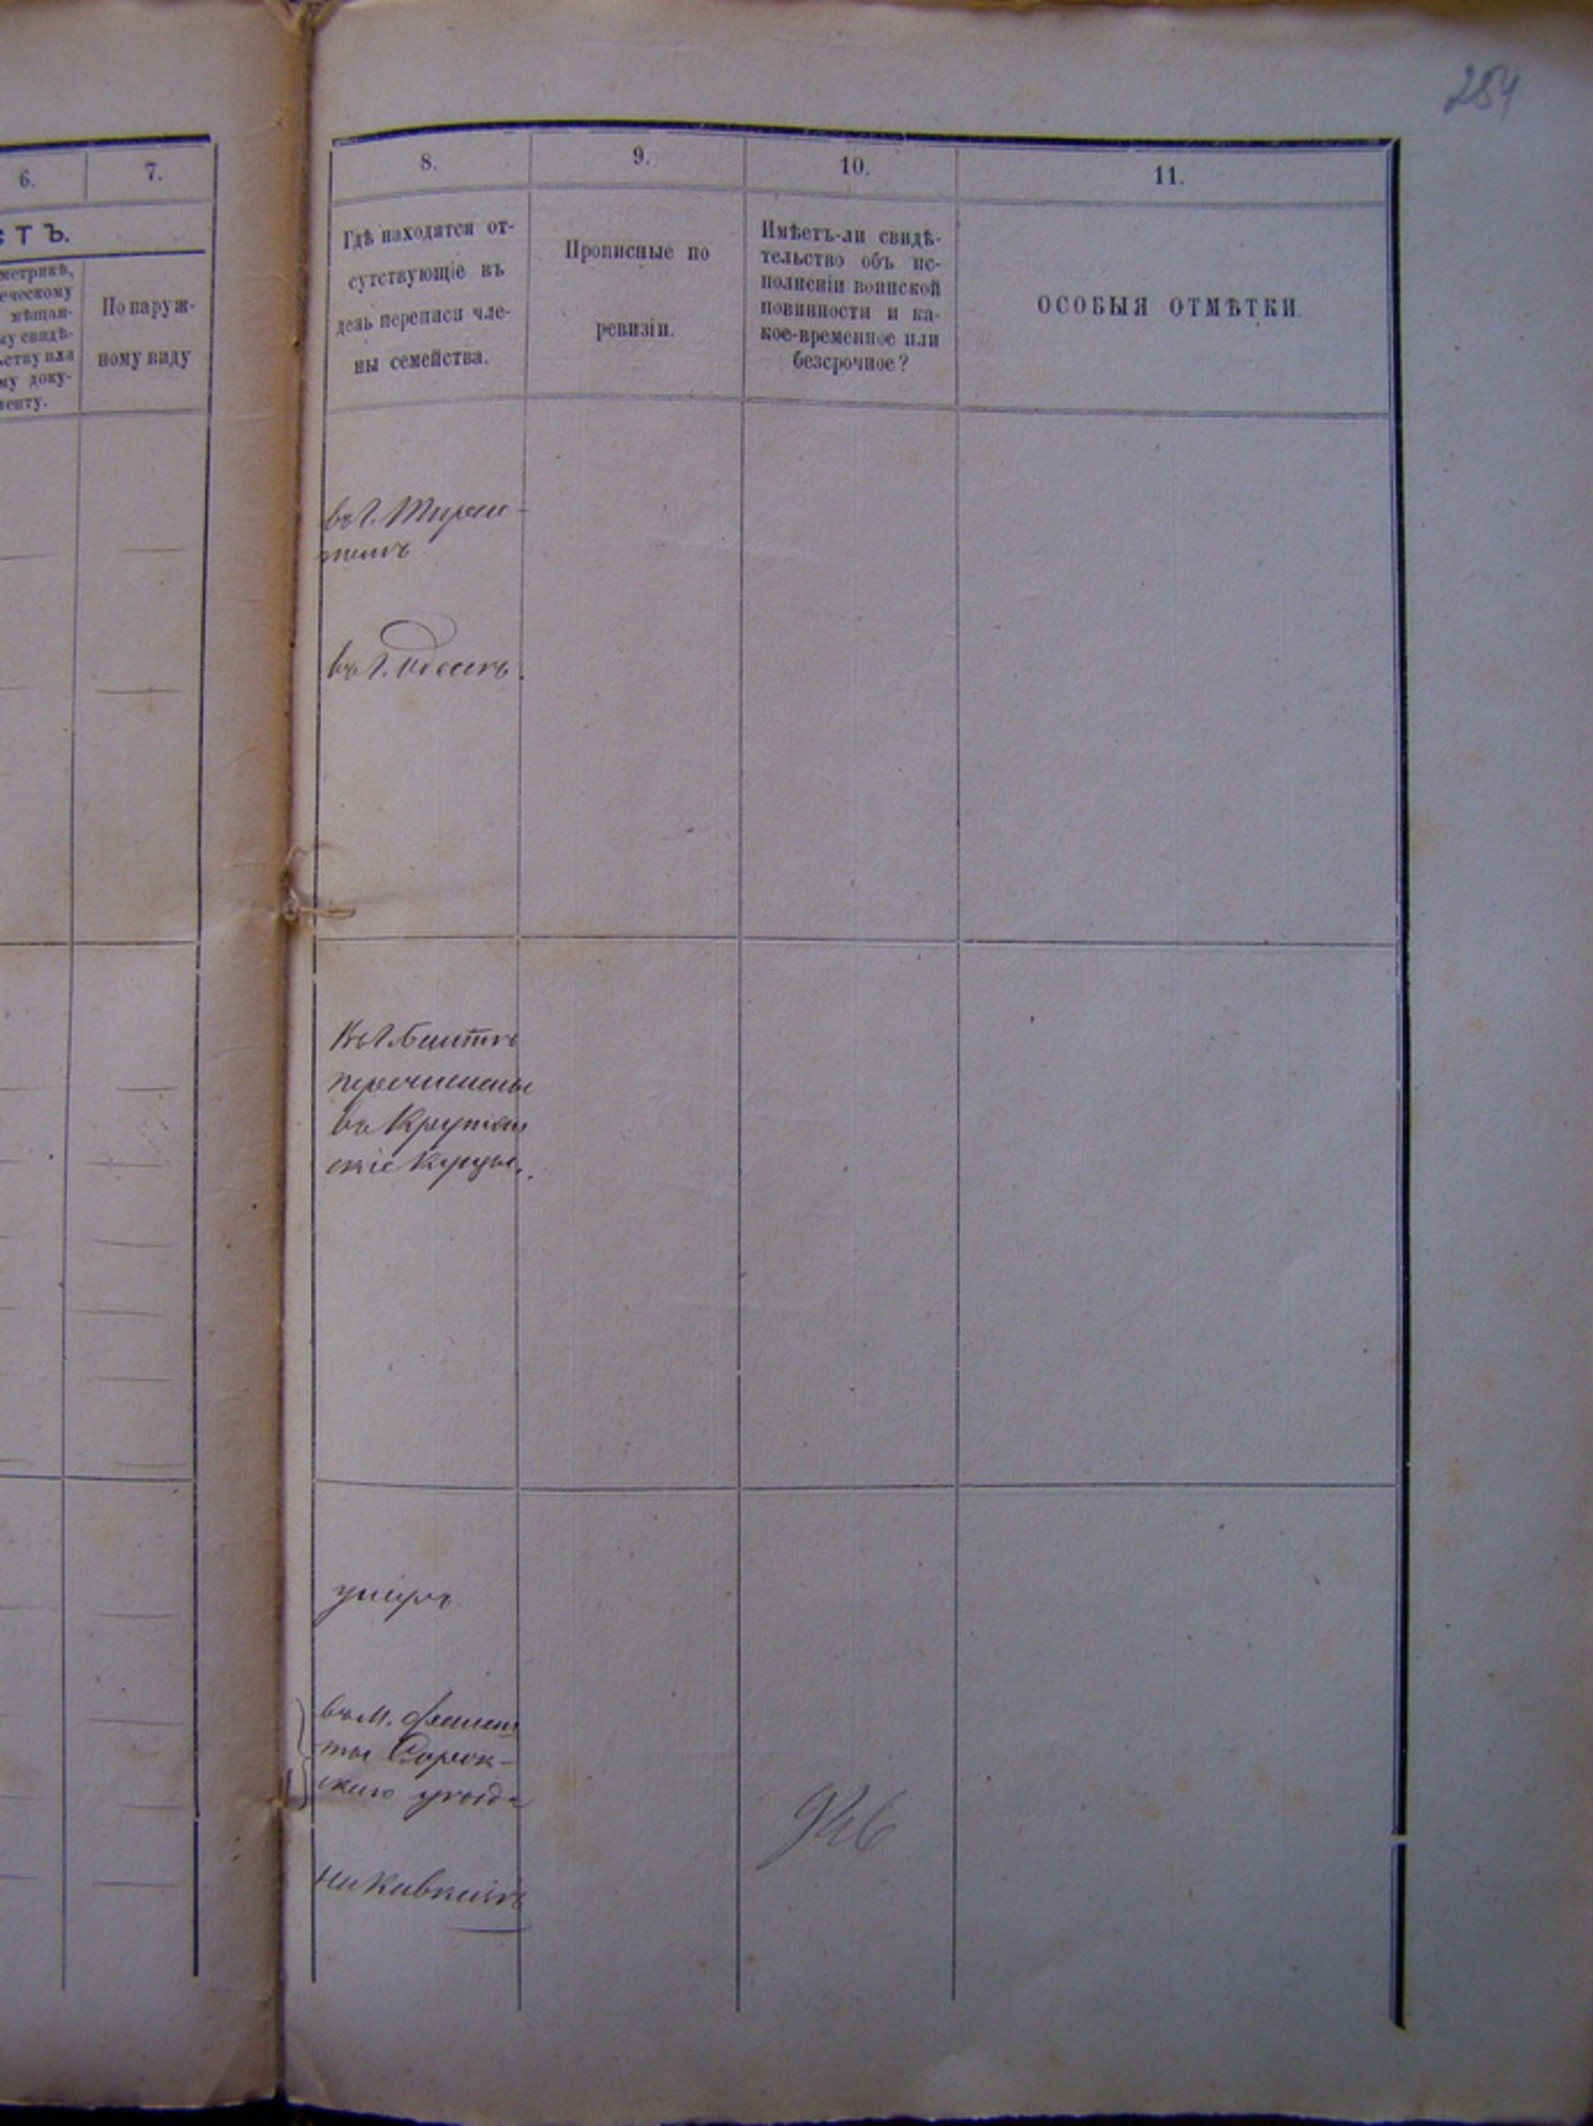 254
6.
7.
СТЪ.
метрикѣ,
еческому
мѣщан-
му свидѣ-
ьству или
му доку-
менту.
По наруж-
ному виду
8.
9.
10.
11.
Гдѣ находятся от-
сутствующіе въ
день переписи чле-
ны семейства.
Прописные по
ревизіи.
Имѣетъ-ли свидѣ-
тельство объ ис-
полненіи воинской
повинности и ка-
кое-временное или
безсрочное?
ОСОБЫЯ ОТМѢТКИ.
въ г. Тирас-
въ г. Одессѣ.
Въ г. Балтѣ
перечислены
въ Крутян
скіе Купцы.
умеръ.
въ м.
ты Сорок-
скаго уѣзда
на Кавказѣ
946